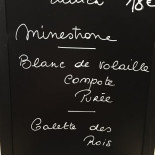 18€
minestrone
Blanc de volaille
compote
Purée
Galette des
Rois